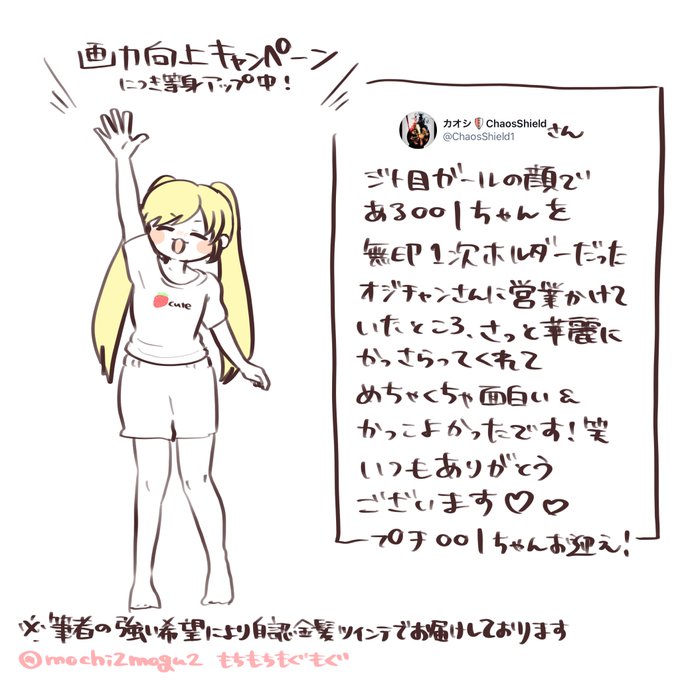 画力向上キャンペーン
につき等身アップ中！
カオシ🛡ChaosShield
@ChaosShield1
さん
ジト目ガールの顔で
ある001ちゃんを
無印1次ホルダーだった
オジチャンさんに営業かけて
いたところ、さっと華麗に
かっさらってくれて
めちゃくちゃ面白い&
かっこよかったです！笑
いつもありがとう
ございます♡♡
プチ001ちゃんお迎え！
cute
※筆者の強い希望により自認金髪ツインテでお届けしております
@mochi2mogu2 もちもちもぐもぐ